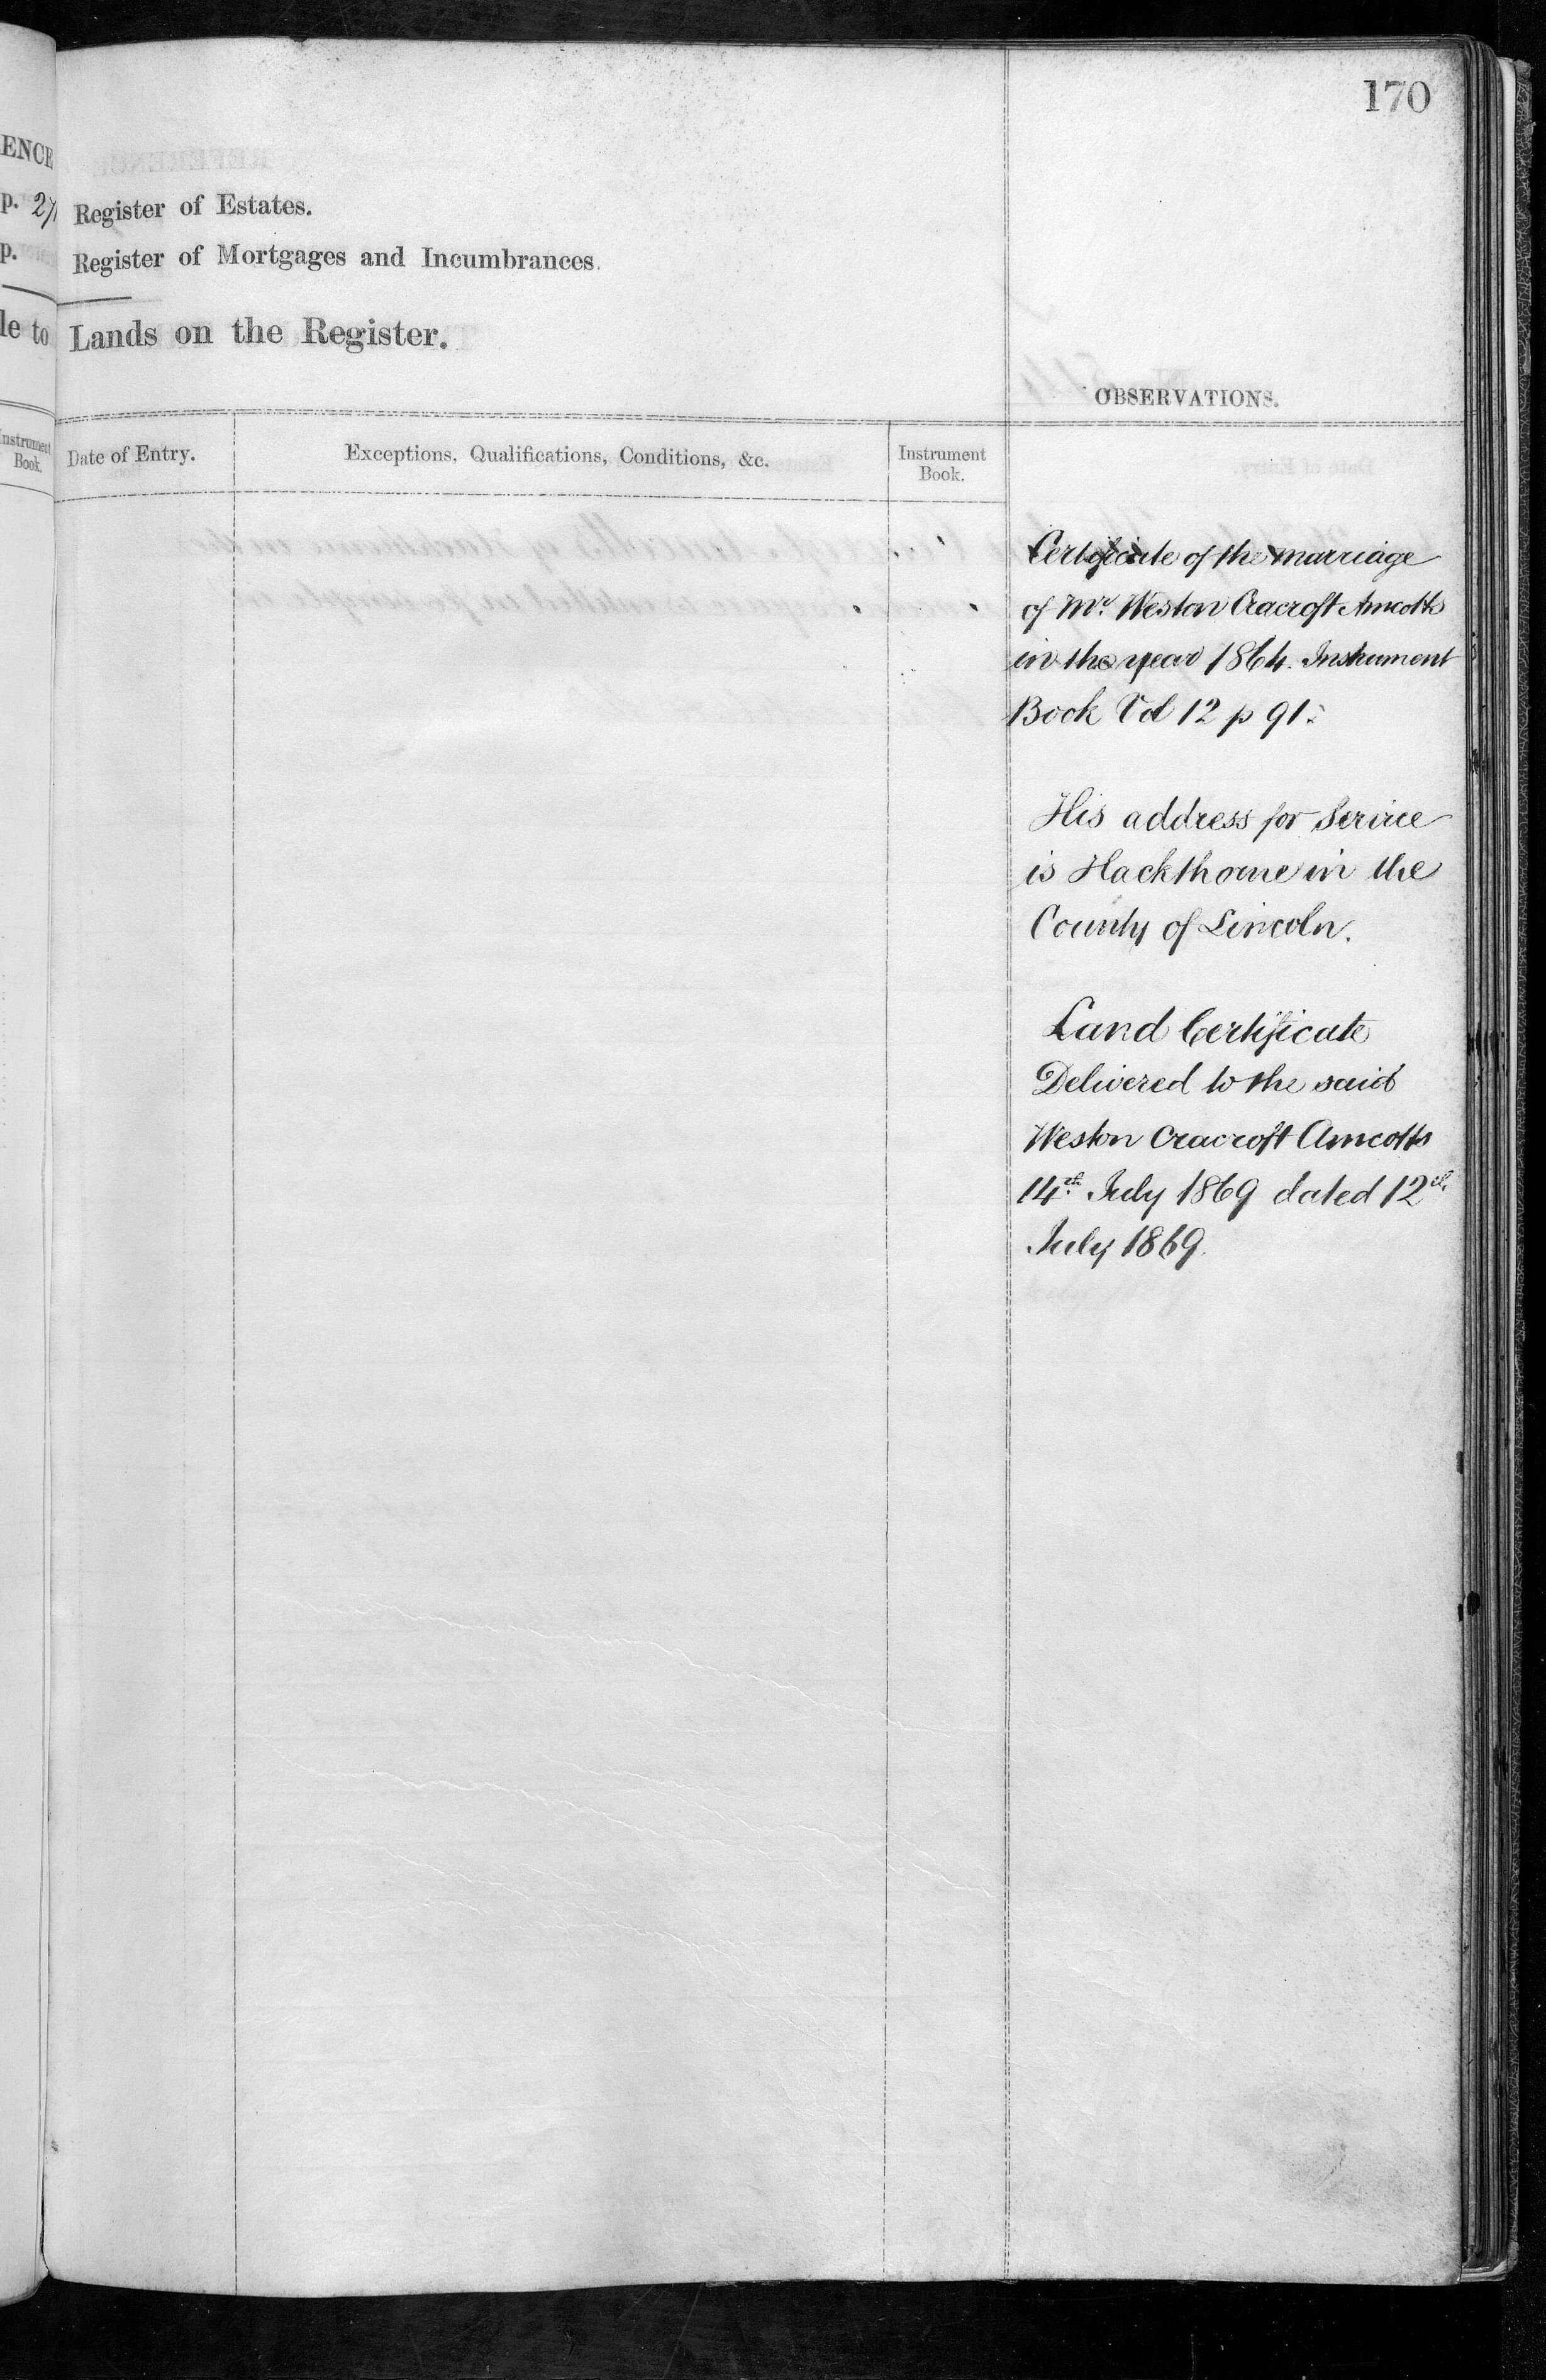 170
ENCE
p. 27
Register of Estates.
p.
Register of Mortgages and Incumbrances.
le to
Lands on the Register.
OBSERVATIONS.
Instrument
Book.
Date of Entry.
Exceptions, Qualifications, Conditions, &c.
Instrument
Book.
Certificate of the marriage
of Mr. Weston Cracroft Amcotts
in the year 1864. Instrument
Book Vol 12 p 91.
His address for Service
is Hackthorne in the
County of Lincoln.
Land Certificate
Delivered to the said
Weston Cracroft Amcotts
14th July 1869 dated 12th
July 1869.